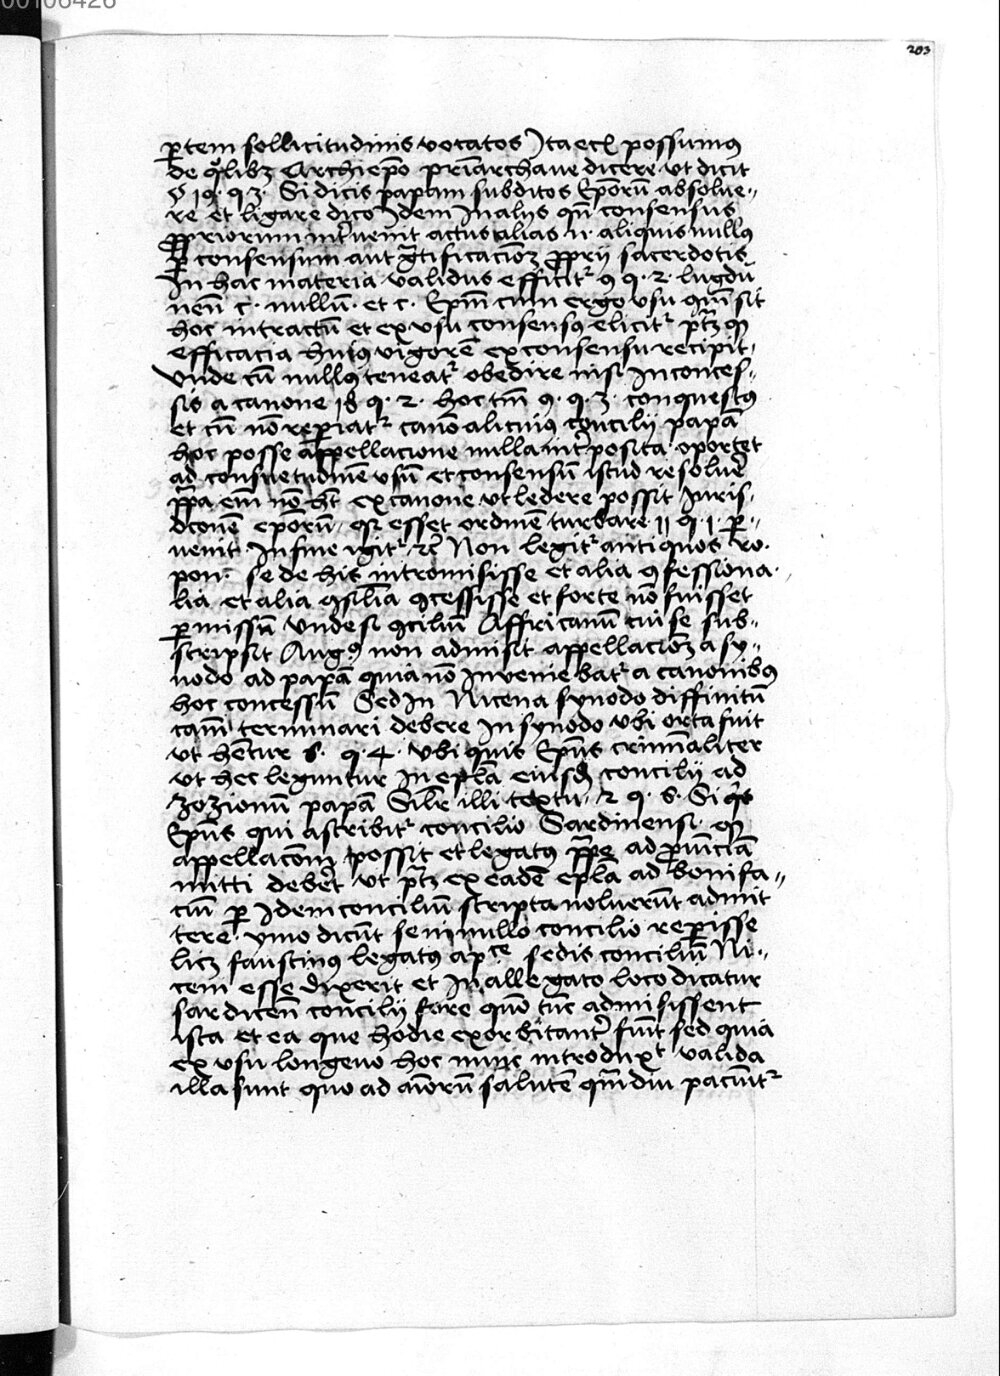 00106426
203
ꝑtem sollicitudinis vocatos Ita ecia possumus
de qͦlibꝫ Archiepō pr̄iarchaue dicere vt dicit
19 · q 3 · Si dicis papam subditos Epōrū absolue„
re et ligare dico Idem In alijs qn̄ consensus
ꝓpriorum int̓uenit actus alias n · aliquis nullꝰ
ꝑ consensum aut gͣtificacioꝫ ꝓprij sacerdotis
In hac materia validus efficitᷣ 9 q · 2 · lugdu
nen̄ c · nullū · et c · Epm̄ cum ergo vsu qm̄ sit
hoc intractū et ex vsu consensꝰ elicitᷣ ptꝫ ꝙ
efficacia huiꝰ vigorē ex consensu recipit ·
Vnde cū nullꝰ teneatᷣ obedire nisi In conces„
sis a canone 18 q · 2 · hoc tm̄ 9 · q · 3 · conquestꝰ
et cū nō reperiatᷣ canō alicuiꝰ concilij papā
hoc posse appellacione nulla int̓posita oportet
ad consuetudinē vsū et consensū istud resoluē
ppa em̄ nō ht̄ ex canone vt ledere possit Iuris„
dcōnē epōrū · qꝛ esset ordinē turbare 11 q · 1 · ꝑ„
uenit In fine igitᷣ ꝛc̄ Non legitᷣ antiquos Ro ·
pon · se de his intromisisse et alia ꝯfessiona„
lia et alia ꝯsilia ꝯcessisse et forte nō fuisset
ꝑmissū Vnde si ꝯciliū Affricanū cui se sub„
scripsit Augꝰ non admisit appellacioꝫ a sy„
nodo ad papā quia nō Inueniebatᷣ a canonibꝰ
hoc concessū Sed In Nicena synodo diffinitū
cam̄ terminari debere In synodo vbi orta fuit
vt hn̄tur 6 · q · 4 · Vbi quis Epūs criminaliter
vt hec leguntur In epl̄a eiusdē concilij ad
zozimū papā Silꝭ illi textu · 2 q · 6 · Si qͥs
Epūs qui ascribitᷣ concilio Sardinensi · ꝙ
appellacōnꝫ possit et legatꝰ ppe ad ꝓuinciā
mitti deber̄t vt ptꝫ ex eadē epl̄a ad bonifa„
ciū ꝑ Idem conciliū scripta noluerūt admit
tere · ymo dicūt se in nullo concilio reperisse
licꝫ faustinꝰ legatꝰ apᶜᵉ · sedis conciliū Ni„
cen̄ esse dixerit et In allegato loco dicatur
sardicen̄ concilij fore quō tūc admisissent
ista et ea que hodie exorbitant̓ fiūt sed quia
ex vsu longeuo hoc nunc introduxᵗ valida
illa sunt quo ad aīorū salutē qm̄diu paciūtᷣ